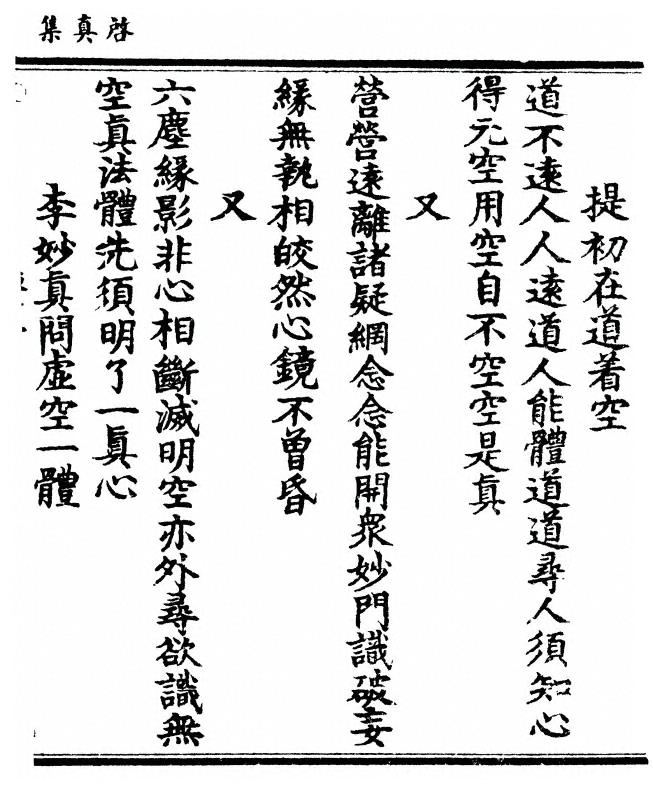 啓真集
提初在道着空
道不遠人人遠道人能體道道尋人須知心
得元空用空自不空空是眞
又
營營遠離諸疑網念念能開衆妙門識破妄
緣無執相皎然心鏡不曽昏
又
六塵緣影非心相斷滅明空亦外尋欲識無
空眞法體先須明了一眞心
李妙眞問虛空一體